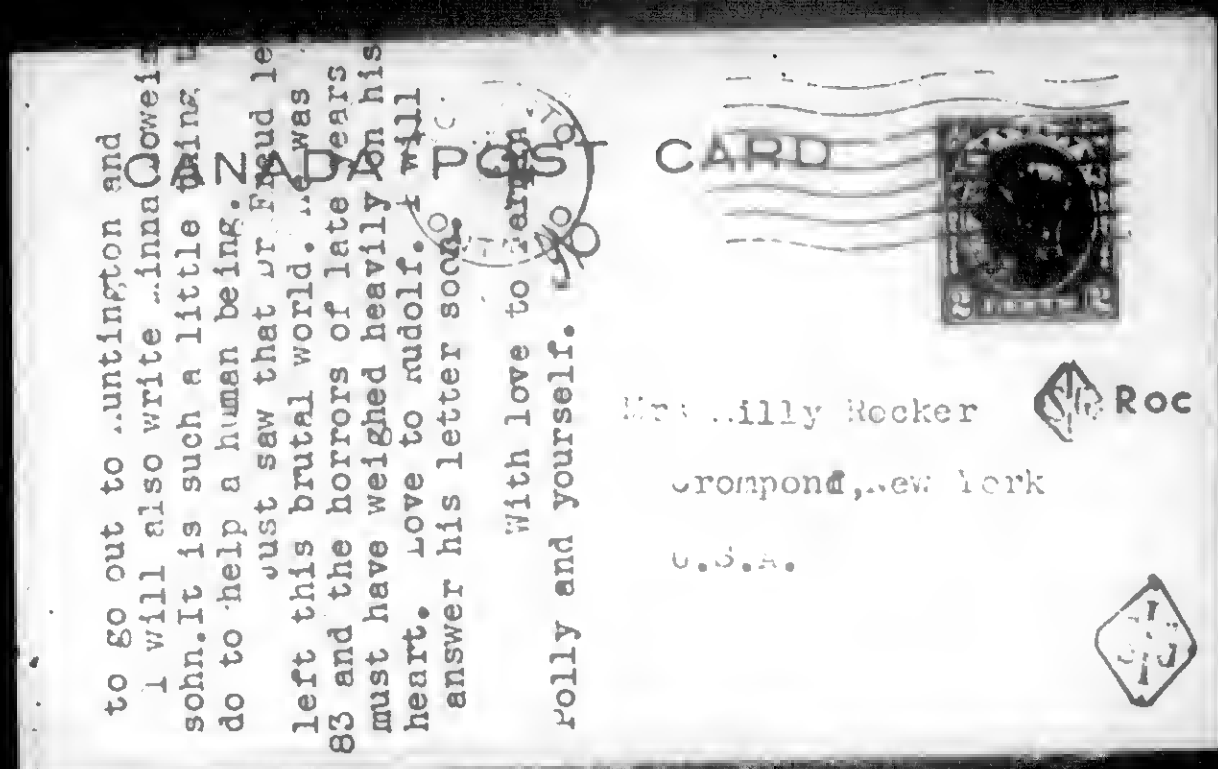 CANADA POST CARD
to go out to .untington and
I will also write .inna Loweis
sohn.It is such a little thing
do to help a human being.
Just saw that Dr Freud le
left this brutal world. He was
83 and the horrors of late years
must have weighed heavily on his
heart. Love to Rudolf. I will
answer his letter soon.
With love to
Polly and yourself.
2 2
Mrs Milly Rocker
Crompond,New York
U.S.A.
Roc